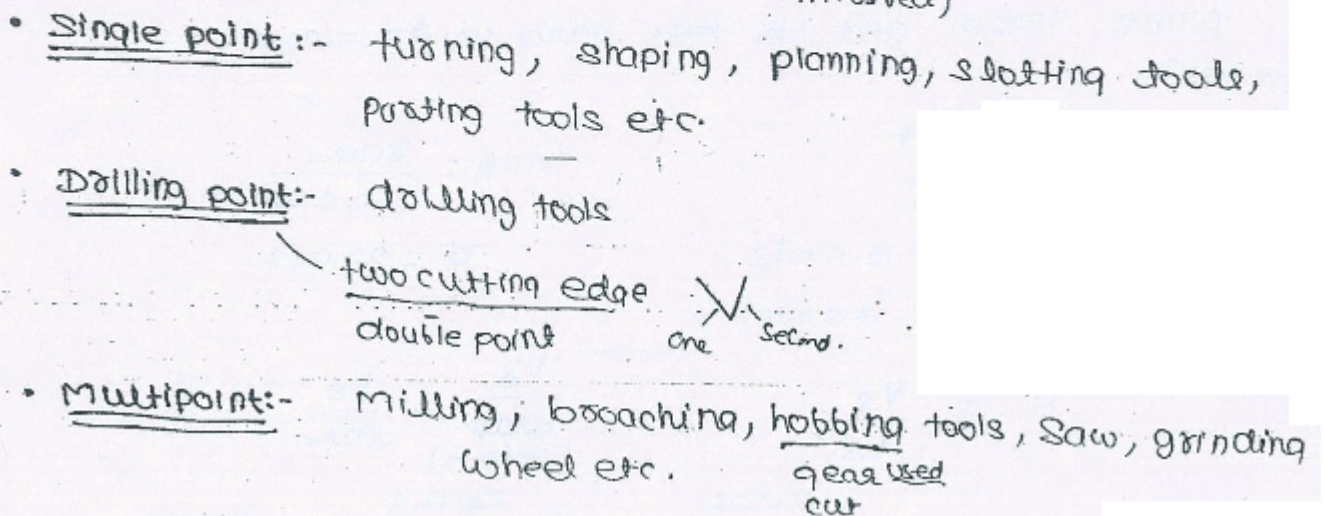 • Single point :- turning, shaping, planning, slotting tools,
parting tools etc.
• Drilling point:- drilling tools
two cutting edge
double point one second.
• Multipoint:- Milling, broaching, hobbing tools, Saw, grinding
wheel etc. gear used
cut